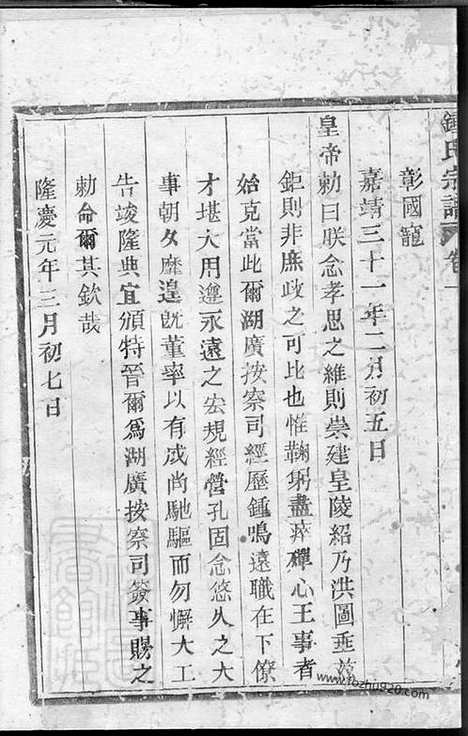 鍾氏宗譜 卷一
彰國寵
嘉靖三十一年二月初五日
皇帝勅曰朕念孝思之維則崇建皇陵紹乃洪圖垂茲
鉅則非庶政之可比也惟鞠躬盡瘁殫心王事者
始克當此爾湖廣按察司經歷鍾鳴遠職在下僚
才堪大用遵永遠之宏規經營孔固念悠久之大
事朝夕靡遑既董率以有成尚馳驅而勿懈大工
告竣隆典宜頒特晉爾爲湖廣按察司簽事賜之
勅命爾其欽哉
隆慶元年三月初七日
www.fozhu920.com